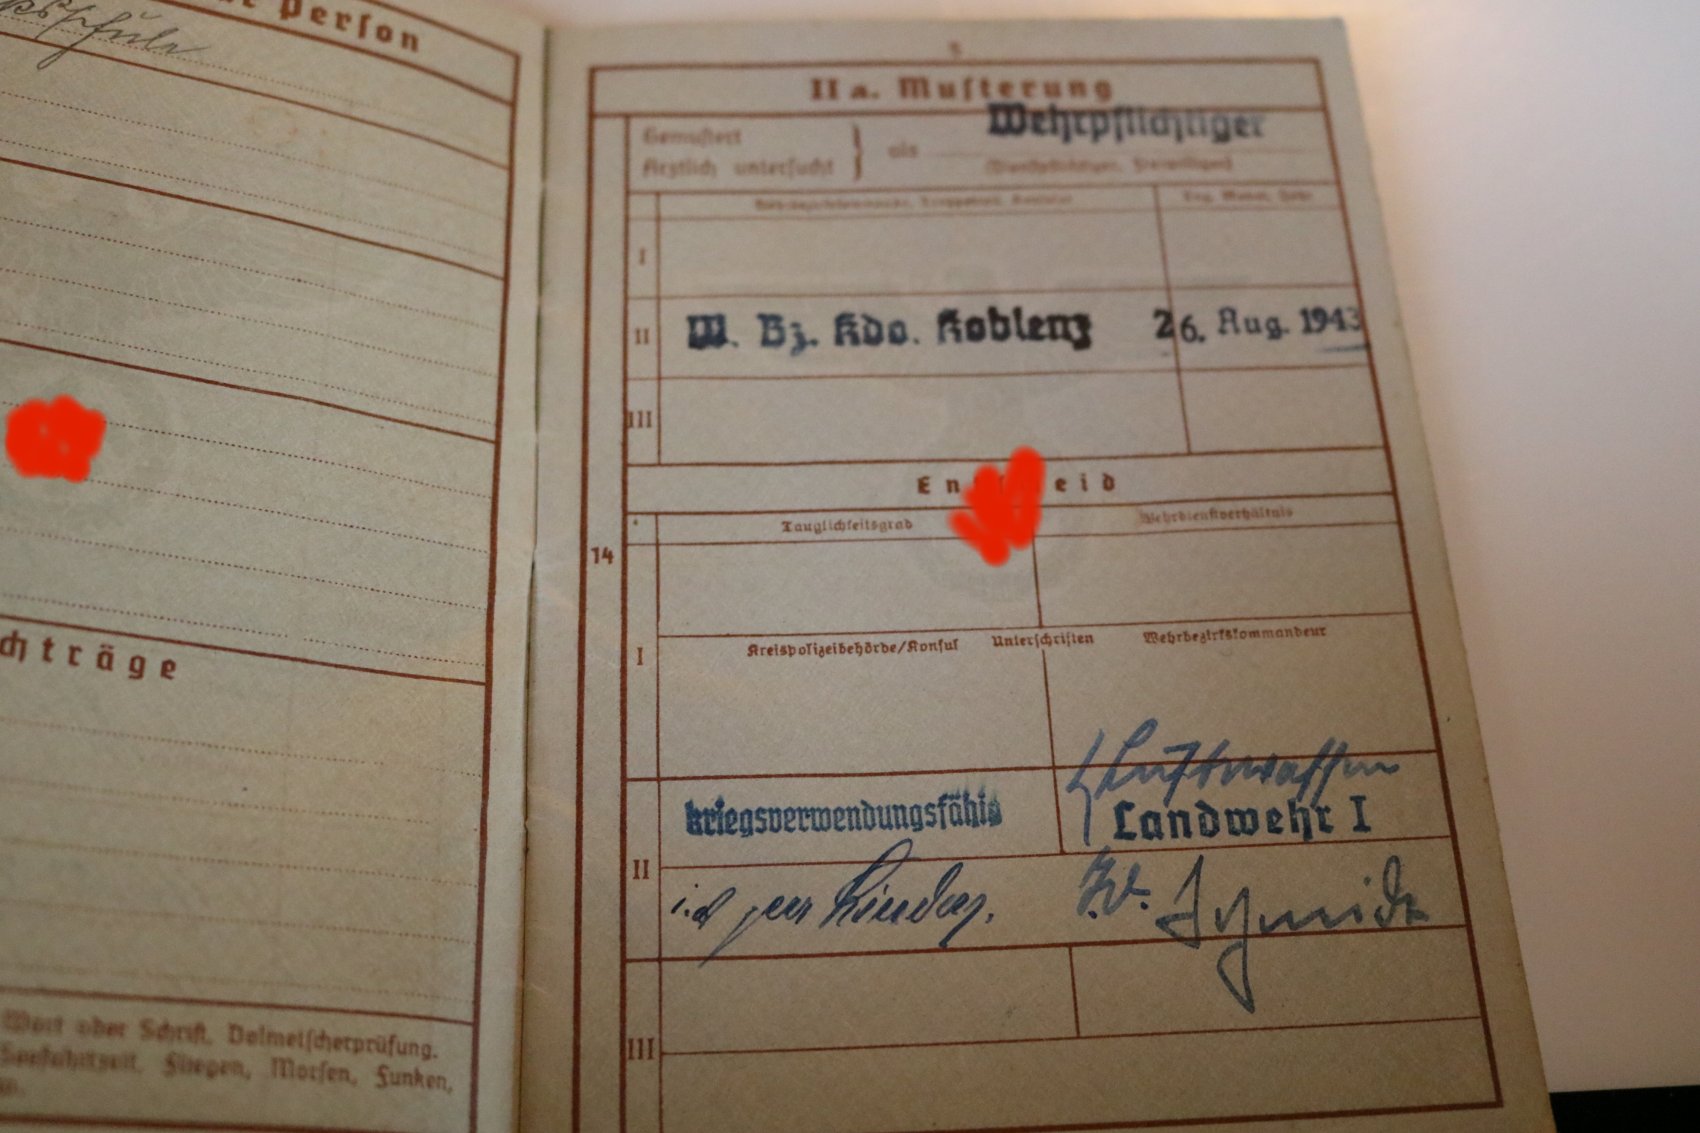 Person
chträge
Wort oder Schrift, Dolmetscherprüfung.
Seefahrtzeit, Fliegen, Morsen, Funken,
5
II a. Musterung
Wehrpflichtiger
Gemustert
Ärztlich untersucht } als
(Dienstpflichtiger, Freiwilliger)
Tag, Monat, Jahr
I
II W. Bz. Kdo. Koblenz 26. Aug. 1943
III
En eid
Tauglichkeitsgrad Wehrdienstverhältnis
14
Kreispolizeibehörde/Konsul Unterschriften Wehrbezirkskommandeur
I
Luftwaffen
kriegsverwendungsfähig Landwehr I
II
J.V. Schmidt
III